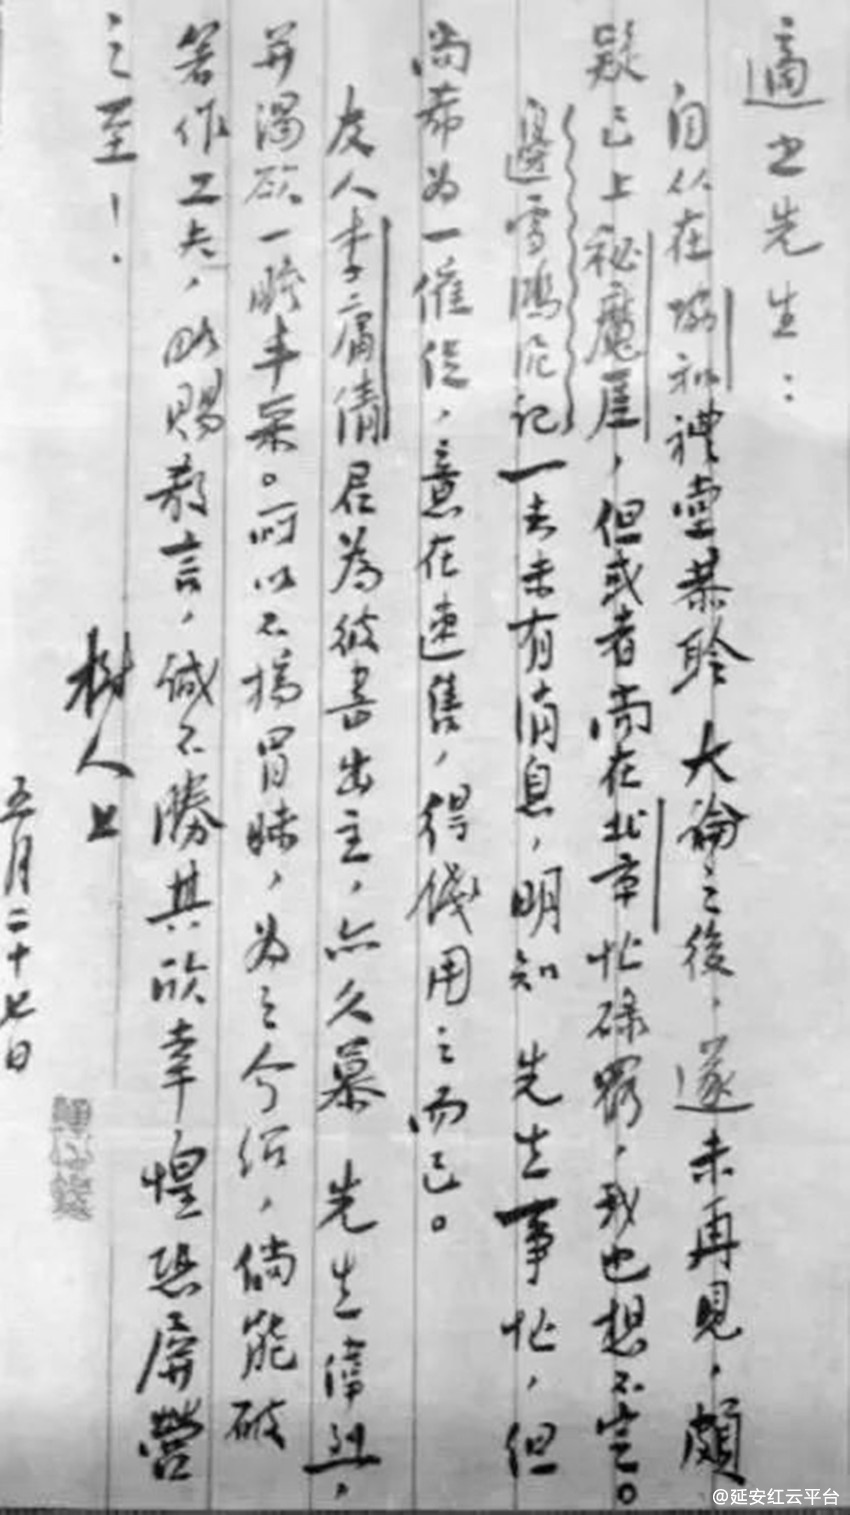 適之先生：
自从在協和禮堂恭聆大論之後，遂未再見，頗
疑已上秘魔崖，但或者尚在北京忙碌罷，我也想不定。
邊雪鴻泥記一去未有消息，明知 先生事忙，但
尚希为一催促，意在速售，得錢用之而已。
友人李庸倩君為彼書出主，亦久慕 先生偉烈，
并渴欲一瞻丰采。所以不揣冒昧，为之介绍，倘能破
著作工夫，略賜教言，誠不勝其欣幸惶恐屏營
之至！
樹人上
五月二十七日
@延安红云平台